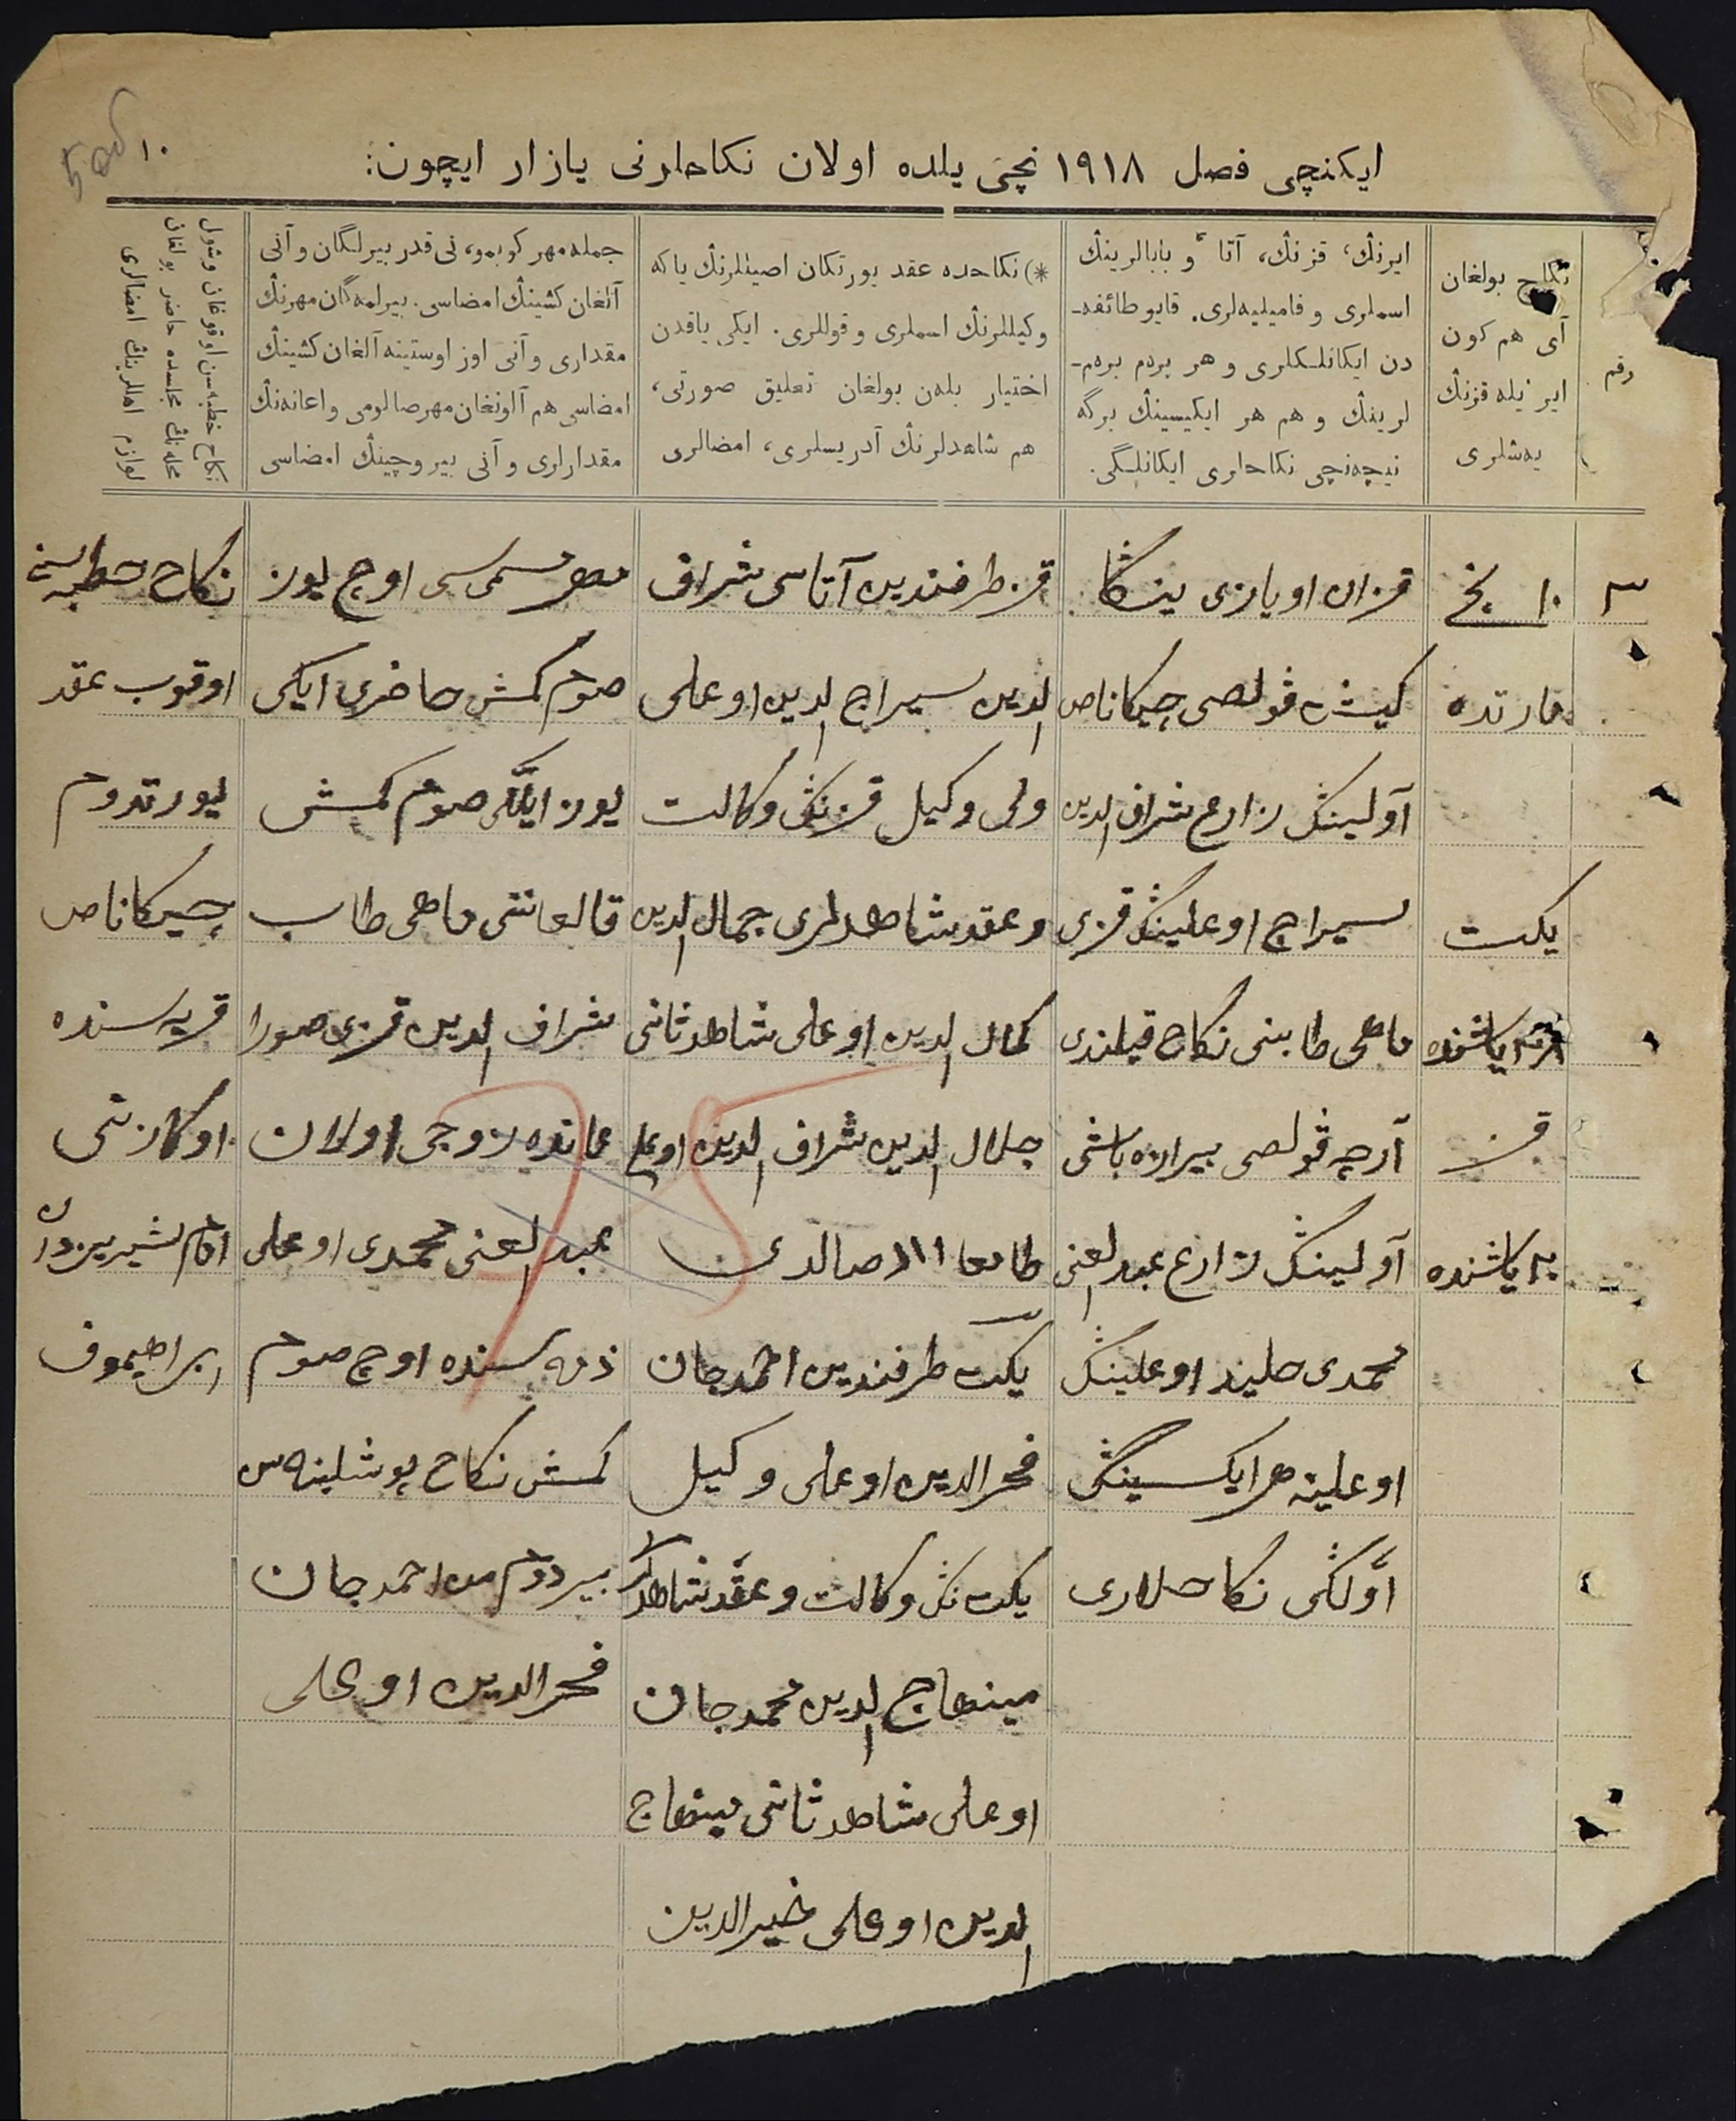 ١٠
ایكنچی فصل ١٩١٨ نچی یلده اولان نكاحلرنی یازار ایچون:
رقم
نكاح بولغان
آی هم كون
ایر یله قزنڭ
یه‌شلری
ایرنڭ، قزنڭ، آتا و بابالرینڭ
اسملری و فامیلیه‌لری. قایو طائفه‌ـ
دن ایكانلكلری و هر برەم برەم‌ـ
لرینڭ و هم هر ایكیسینڭ برگه
نیچه‌نچی نكاحلری ایكانلگی.
*) نكاحده عقد یورتكان اصیللرنڭ یاكه
وكیللرنڭ اسملری و قوللری. ایكی یاقدن
اختیار بله‌ن بولغان تعلیق صورتی،
هم شاهدلرنڭ آدریسلری، امضالری
جمله مهر كوبمو، نی قدر بیرلگان و آنی
آلغان كشینڭ امضاسی. بیرلمه‌گان مهرنڭ
مقداری و آنی اوز اوستینه آلغان كشینڭ
امضاسی هم آلونغان مهر صالومی و اعانه‌نڭ
مقدارلری و آنی بیروچینڭ امضاسی
نكاح خطبه‌سن اوقوغان و شول
محله‌نڭ مجلسده حاضر بولغان
لوازم اهللرینڭ امضالری
٣
١٠ نچی
مارتده
یكت
یاشنده
قز
یاشنده
قزان اویازی ینگا
كیشت ڤولصی چیكاناص
آولینڭ زارع شراف الدین
سیراج اوغلینڭ قزی
ماهی طابنی نكاح قیلندی
آرچه ڤولصی بیرازه باشی
آولینڭ زارع عبدالغنی
محمدی حلید اوغلینڭ
اوغلینه هر ایكسینڭ
اوّلگی نكاحلاری
قز طرفندین آتاسی شراف
الدین سیراج الدین اوغلی
ولی وكیل قزنڭ وكالت
و عقد شاهدلری جمال الدین
كمال الدین اوغلی شاهد ثانی
جلال الدین شراف الدین اوغلی
یكت طرفندین احمدجان
فخرالدین اوغلی وكیل
یكت نڭ وكالت و عقد شاهدلری
مینهاج الدین محمدجان
اوغلی شاهد ثانی مینهاج
الدین اوغلی خیرالدین
مهر مسمی سی اوچ یوز
صوم كمش حاضری ایكی
یوز ایللی صوم كمش
قالغاننی ماهی طاب
شراف الدین قزی صورا
غاندە زوجی اولان
عبدالغنی محمدی اوغلی
ذمه سنده اوچ صوم
كمش نكاح پوشلینه‌س
بیردوم من احمدجان
فخرالدین اوغلی
نكاح خطبه‌سنی
اوقوب عقد
یورتدوم
چیكاناص
قریه‌سنده
اوكازنی
امام شیریزدان
ابراهیموف